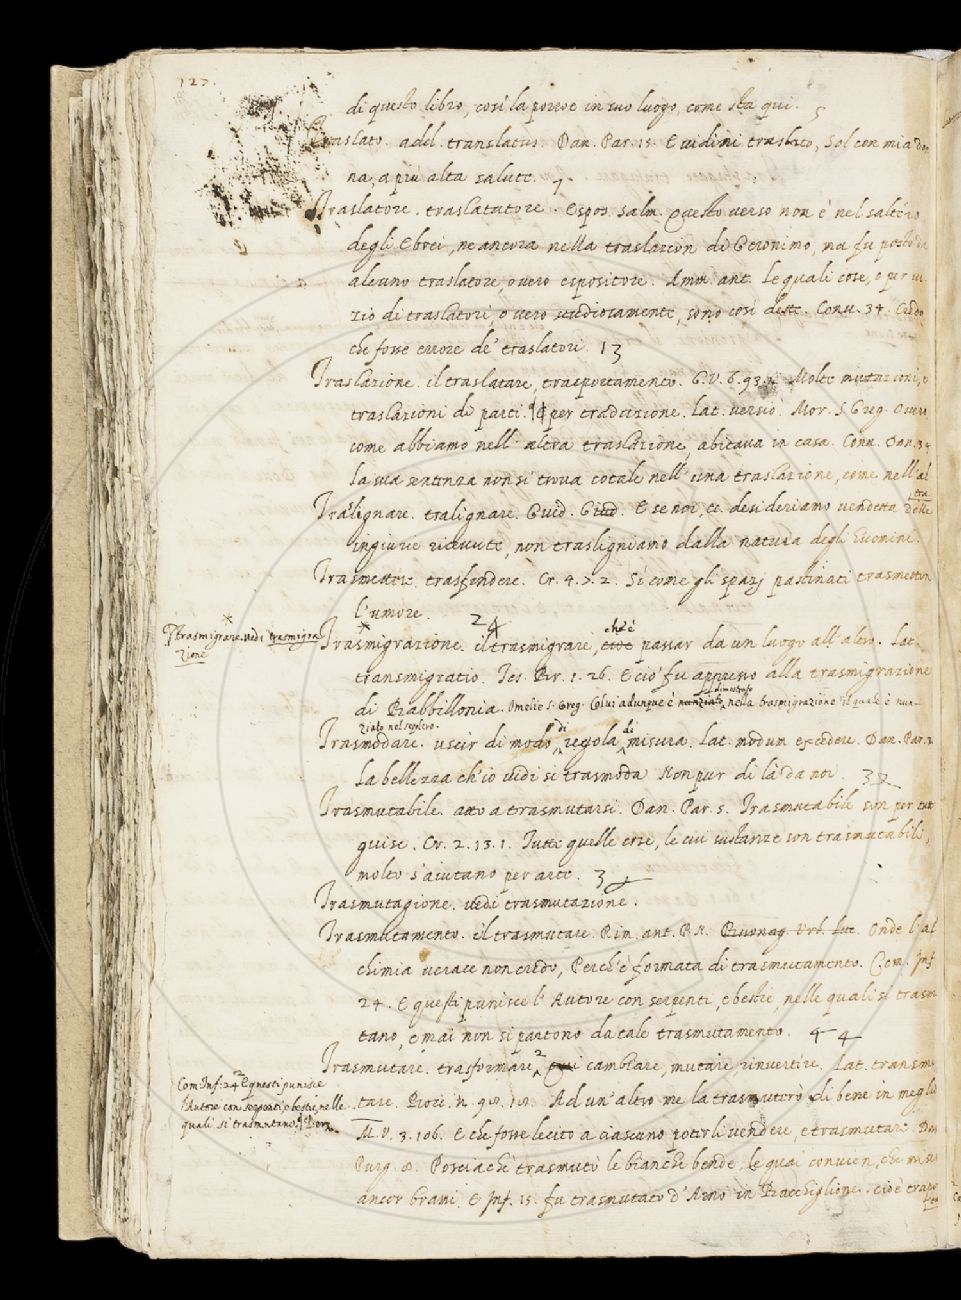 127.
di questo libro, così la porroe in suo luogo, come sta qui. 5
Traslato. add. translatus. Dan. Par. 15. E vidimi traslato, Sol con mia don
na, a più alta salute. 7
Traslatore. traslatatore. Espos. Salm. Questo verso non è nel saltéro
degli Ebrei, ne ancora nella traslazion di Geronimo, ma fu posto da
alcuno traslatore, overo espositore. Amm. ant. Le quali cose, o per vi
zio di traslatori, o vero studiosamente, sono così dette. Conv. 34. Credo
che fosse errore de' traslatori. 13
Traslazione. il traslatare, trasportamento. G.V. 6. 93. 2. Molte mutazioni, e
traslazioni di parti. per traduzione. Lat. versio. Mor. S. Greg. Overo
come abbiamo nell' altra traslazione, abitava in casa. Com. Dan. 34
La sua sentenza non si trova cotale nell' una traslazione, come nell' al
tra
Tralignare. tralignare. Guid. Giud. E se noi, ce desideriamo vendetta delle
ingiurie ricevute, non trasligniamo dalla natura degli Uomini.
Trasmettere. trasfondere. Cr. 4. 7. 2. Sì come gli spazj pastinati trasmetton
l'umore. 24
Trasmigrare. vedi trasmigra
zione
Trasmigrazione. il trasmigrare, cioè ch'è passar da un luogo all' altro. Lat.
transmigratio. Tes. Br. 1. 26. E ciò fu appresso alla trasmigrazione
di Babbillonia. Omelie S. Greg. Colui adunque è nunziato dimostrato nella trasmigrazione il quale è nun
ziato nel
Trasmodare. uscir di modo, di regola, di misura. Lat. modum excedere. Dan. Par. 3
La bellezza ch'io vidi si trasmoda Non pur di là da noi. 32
Trasmutabile. atto a trasmutarsi. Dan. Par. 5. Trasmutabile son per tutte
guise. Cr. 2. 13. 1. Tutte quelle cose, le cui sustanze son trasmutabili,
molto s'aiutano per arte.
Trasmutagione. vedi trasmutazione.
Trasmutamento. il trasmutare. Rim. ant. P.N. Buonag. Urb. Onde l'al
chimia verace non credo, Perch'è formata di trasmutamento. Com. Inf.
24. E questi punisce l'Autore con serpenti, e bestie, nelle quali si trasmu
tano, e mai non si partono da tale trasmutamento. 44
Trasmutare. trasformare, cambiare, mutare rinvertire. Lat. transmu
tare. Bocc. n. 98. 18. Ad un' altro me la trasmuterò di bene in meglio
M.V. 3. 106. E che fosse lecito a ciascuno poterli vendere, e trasmutare. Dan
Purg. 8. Poscia che trasmutò le bianche bende, le quai convien, che misera
ancor brami. E Inf. 15. fu trasmutato d'Arno in Bacchiglione. cioè traspo
Com. Inf: 24 E questi punisce
l'Autore con serpenti, e bestie, nelle
quali si trasmutano.